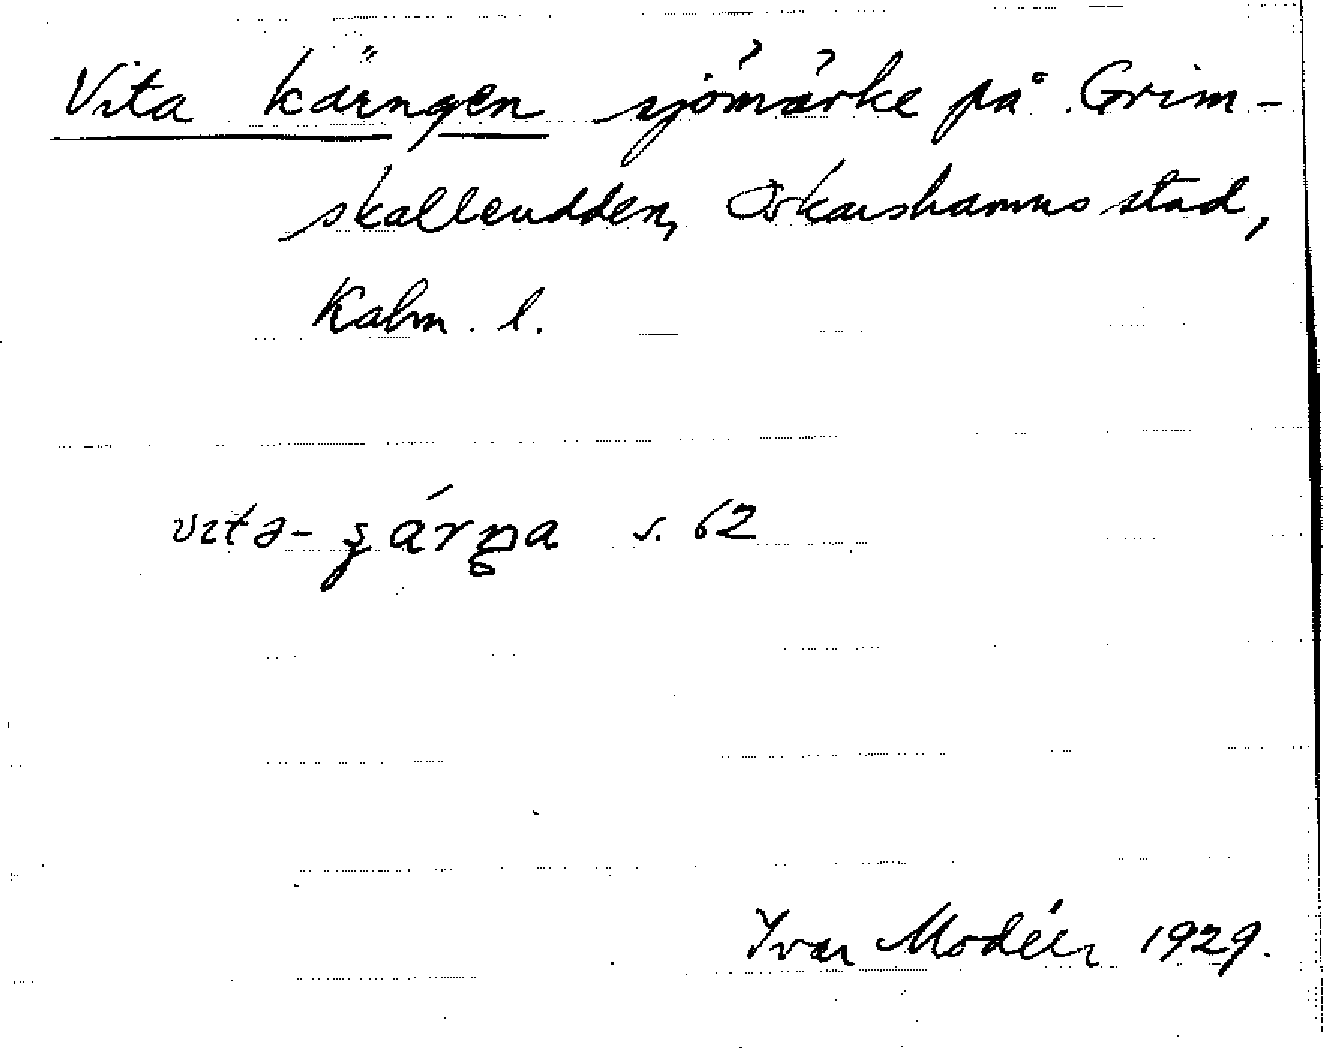 Vita kärngen sjömärke på Grim-
skalleudden, Oskarshamns stad,
Kalm. l.
s. 62
Ivar Modéer 1929.